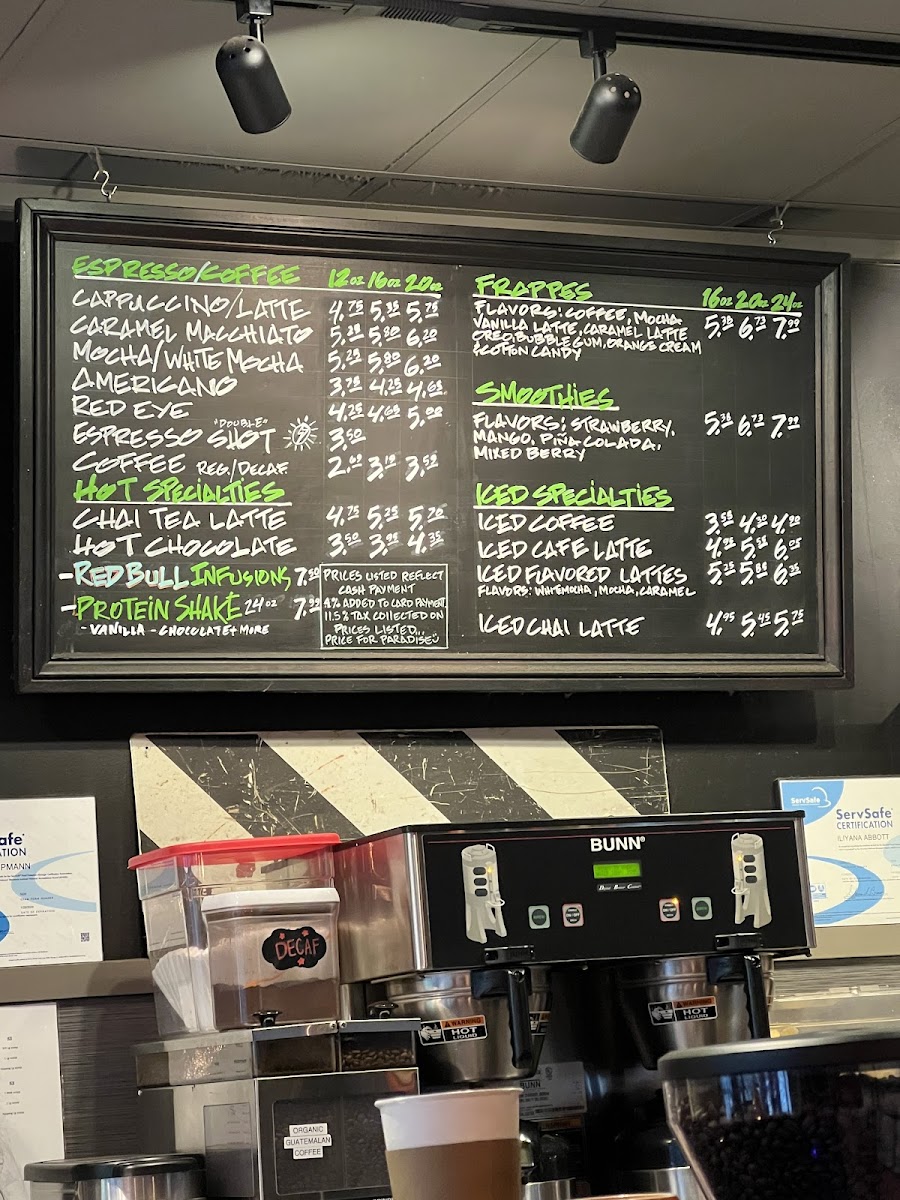 ESPRESSO/COFFEE 12oz 16oz 20oz
CAPPUCCINO/LATTE 4.75 5.35 5.75
CARAMEL MACCHIATO 5.25 5.80 6.20
MOCHA/WHITE MOCHA 5.25 5.80 6.20
AMERICANO 3.75 4.25 4.65
RED EYE 4.25 4.65 5.00
"DOUBLE"
ESPRESSO SHOT 3.50
COFFEE REG./DECAF 2.60 3.10 3.50
HOT SPECIALTIES
CHAI TEA LATTE 4.75 5.25 5.70
HOT CHOCOLATE 3.50 3.95 4.35
-RED BULL INFUSIONS 7.50
-PROTEIN SHAKE 24oz 7.99
-VANILLA -CHOCOLATE + MORE
PRICES LISTED REFLECT
CASH PAYMENT
4% ADDED TO CARD PAYMENT
11.5% TAX COLLECTED ON
PRICES LISTED...
PRICE FOR PARADISE
FRAPPES 16oz 20oz 24oz
FLAVORS: COFFEE, MOCHA 5.35 6.73 7.99
VANILLA LATTE, CARAMEL LATTE
OREO, BUBBLE GUM, ORANGE CREAM
& COTTON CANDY
SMOOTHIES
FLAVORS: STRAWBERRY, 5.35 6.73 7.99
MANGO, PIÑA COLADA,
MIXED BERRY
ICED SPECIALTIES
ICED COFFEE 3.55 4.30 4.90
ICED CAFE LATTE 4.95 5.55 6.05
ICED FLAVORED LATTES 5.25 5.85 6.35
FLAVORS: WHITE MOCHA, MOCHA, CARAMEL
ICED CHAI LATTE 4.95 5.45 5.75
ServSafe
ServSafe
CERTIFICATION
ILIYANA ABBOTT
BUNN
DECAF
WARNING
HOT
LIQUID
WARNING
HOT
LIQUID
BUNN
ORGANIC
GUATEMALAN
COFFEE